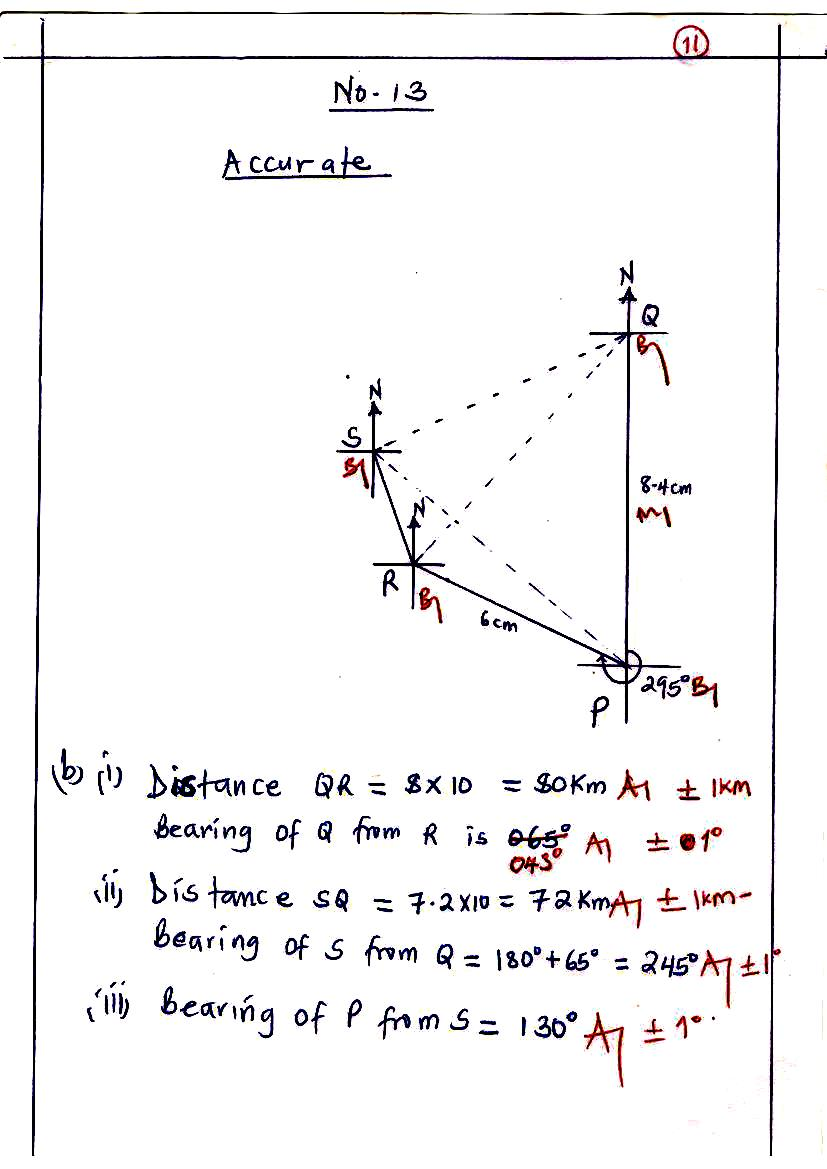 11
No. 13
Accurate
N
Q
B1
N
S
B1
8.4cm
M1
N
R
B1
6cm
295° B1
P
(b) (i) Distance QR = 8 x 10 = 80Km A1 ± 1km
Bearing of Q from R is 065° 043° A1 ± 1°
(ii) Distance SQ = 7.2x10 = 72Km A1 ± 1km-
Bearing of S from Q = 180°+65° = 245° A1 ±1°
(iii) Bearing of P from S = 130° A1 ± 1°.